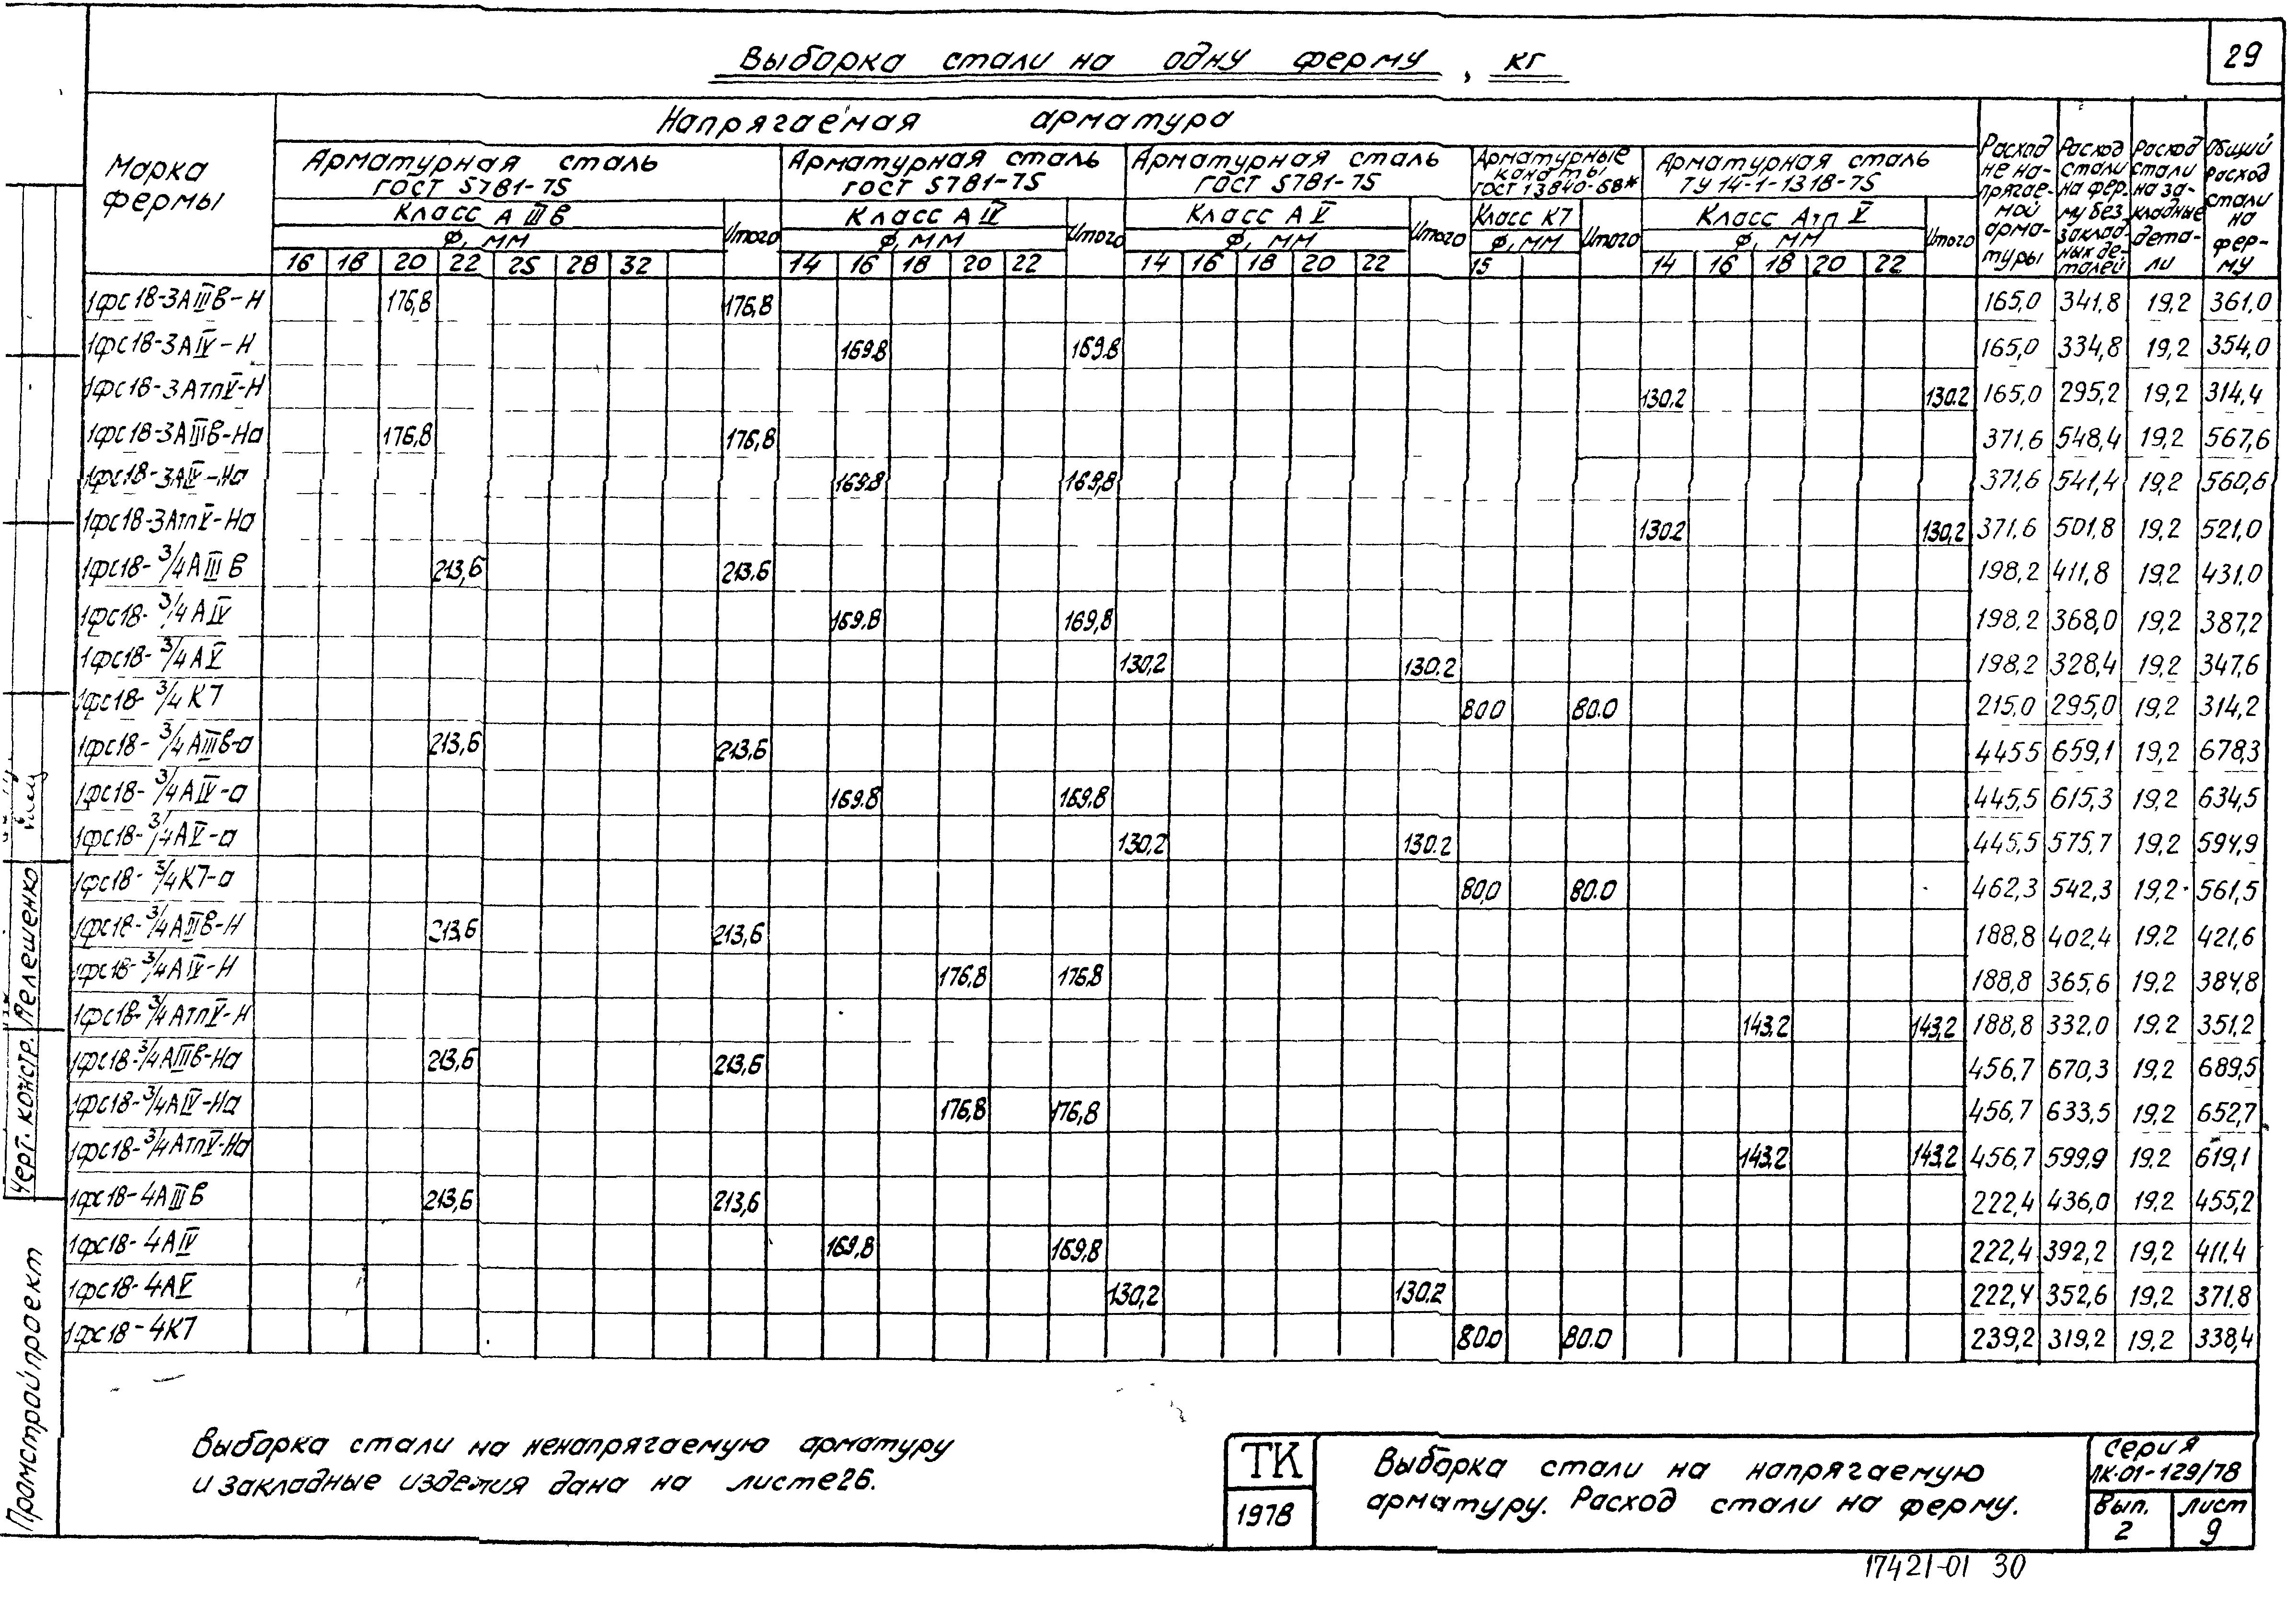 29
Выборка стали на одну ферму, кг
Марка фермы
Напрягаемая арматура
Арматурная сталь ГОСТ 5781-75
Класс А IIIв
Ф, мм
16 18 20 22 25 28 32
Итого
Арматурная сталь ГОСТ 5781-75
Класс А IV
Ф, мм
14 16 18 20 22
Итого
Арматурная сталь ГОСТ 5781-75
Класс А V
Ф, мм
14 16 18 20 22
Итого
Арматурные канаты ГОСТ 13840-68*
Класс К7
Ф, мм
15
Итого
Арматурная сталь ТУ 14-1-1318-75
Класс Атп V
Ф, мм
14 16 18 20 22
Итого
Расход не напрягаемой арматуры
Расход стали на ферму без закладных деталей
Расход стали на закладные детали
Общий расход стали на ферму
1фс18-3АIIIв-Н 176,8 176,8 165,0 341,8 19,2 361,0
1фс18-3АIV-Н 169.8 169.8 165,0 334,8 19,2 354,0
1фс18-3АтпV-Н 130.2 130.2 165,0 295,2 19,2 314,4
1фс18-3АIIIв-На 176,8 176,8 371,6 548,4 19,2 567,6
1фс18-3АIV-На 169.8 169,8 371,6 541,4 19,2 560,6
1фс18-3АтпV-На 130.2 130,2 371,6 501,8 19,2 521,0
1фс18-3/4АIIIв 213,6 213.6 198,2 411,8 19,2 431,0
1фс18-3/4АIV 169.8 169,8 198,2 368,0 19,2 387,2
1фс18-3/4АV 130,2 130.2 198,2 328,4 19,2 347,6
1фс18-3/4К7 80.0 80.0 215,0 295,0 19,2 314,2
1фс18-3/4АIIIв-а 213,6 213,6 445,5 659,1 19,2 678,3
1фс18-3/4АIV-а 169.8 169.8 445,5 615,3 19,2 634,5
1фс18-3/4АV-а 130,2 130.2 445,5 575,7 19,2 594,9
1фс18-3/4К7-а 80,0 80.0 462,3 542,3 19,2 561,5
1фс18-3/4АIIIв-Н 213,6 213,6 188,8 402,4 19.2 421,6
1фс18-3/4АIV-Н 176,8 176,8 188,8 365,6 19,2 384,8
1фс18-3/4АтпV-Н 143.2 143,2 188,8 332,0 19,2 351,2
1фс18-3/4АIIIв-На 213,6 213,6 456,7 670,3 19,2 689,5
1фс18-3/4АIV-На 176,8 176,8 456,7 633,5 19,2 652,7
1фс18-3/4АтпV-На 143,2 143,2 456,7 599,9 19,2 619,1
1фс18-4АIIIв 213,6 213,6 222,4 436,0 19,2 455,2
1фс18-4АIV 169,8 169,8 222,4 392,2 19,2 411,4
1фс18-4АV 130,2 130,2 222,4 352,6 19,2 371,8
1фс18-4К7 80.0 80.0 239,2 319,2 19,2 338,4
Выборка стали на ненапрягаемую арматуру
и закладные изделия дана на листе 26.
ТК
1978
Выборка стали на напрягаемую
арматуру. Расход стали на ферму.
Серия
ПК-01-129/78
Вып.
2
Лист
9
17421-01 30
Промстройпроект
Черт. констр. Мелешенко